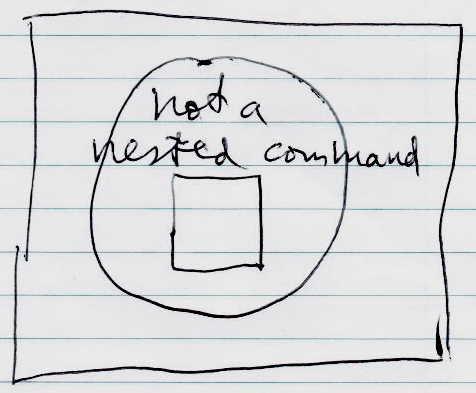 not a
nested command